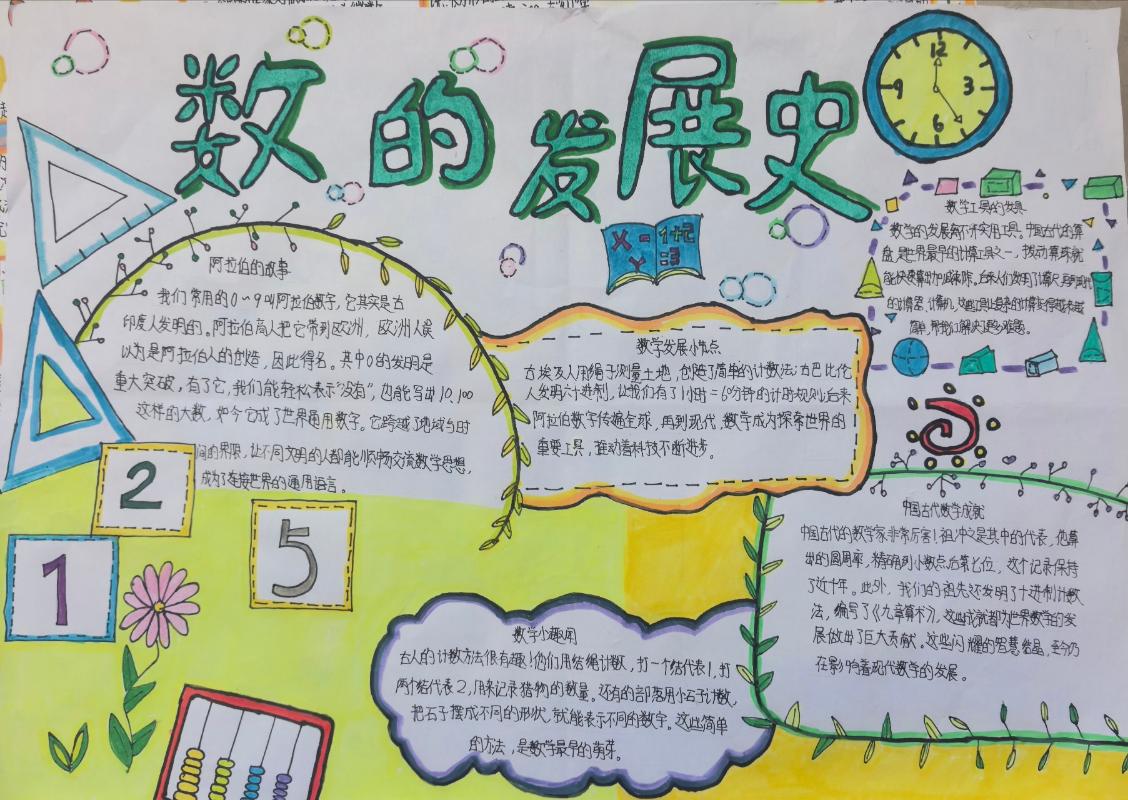 数的发展史
12
3
6
9
X - 1+2
Y =3
数学工具的发展
数学的发展离不开实用工具。中国古代的算
盘,是世界最早的计算工具之一,拨动算珠就
能快速算出加减乘除。后来人们发明了计算尺,再到现代
的计算器、计算机,这些工具让复杂的计算变得越来越
简单,帮我们解决了更多难题。
阿拉伯的故事
我们常用的0~9叫阿拉伯数字,它其实是古
印度人发明的。阿拉伯商人把它带到欧洲,欧洲人误
以为是阿拉伯人的创造,因此得名。其中0的发明是
重大突破,有了它,我们能轻松表示"没有",也能写出10,100
这样的大数,如今它成了世界通用数字。它跨越了地域与时
间的界限,让不同文明的人都能顺畅交流数学思想,
成为了连接世界的通用语言。
数学发展小节点
古埃及人用绳子测量土地,创造了简单的计数法;古巴比伦
人发明六十进制,让我们有了1小时=60分钟的计时规则;后来
阿拉伯数字传遍全球,再到现代,数学成为探索世界的
重要工具,推动着科技不断进步。
2
1
5
中国古代数学成就
中国古代的数学家非常厉害!祖冲之是其中的代表,他算
出的圆周率,精确到小数点后第七位,这个记录保持
了近千年。此外,我们的祖先还发明了十进制计数
法,编写了《九章算术》,这些成就都为世界数学的发
展做出了巨大贡献。这些闪耀的智慧结晶,至今仍
在影响着现代数学的发展。
数学小趣闻
古人的计数方法很有趣!他们用结绳计数,打一个结代表1,打
两个结代表2,用来记录猎物的数量。还有的部落用小石子计数,
把石子摆成不同的形状,就能表示不同的数字。这些简单
的方法,是数学最早的萌芽。